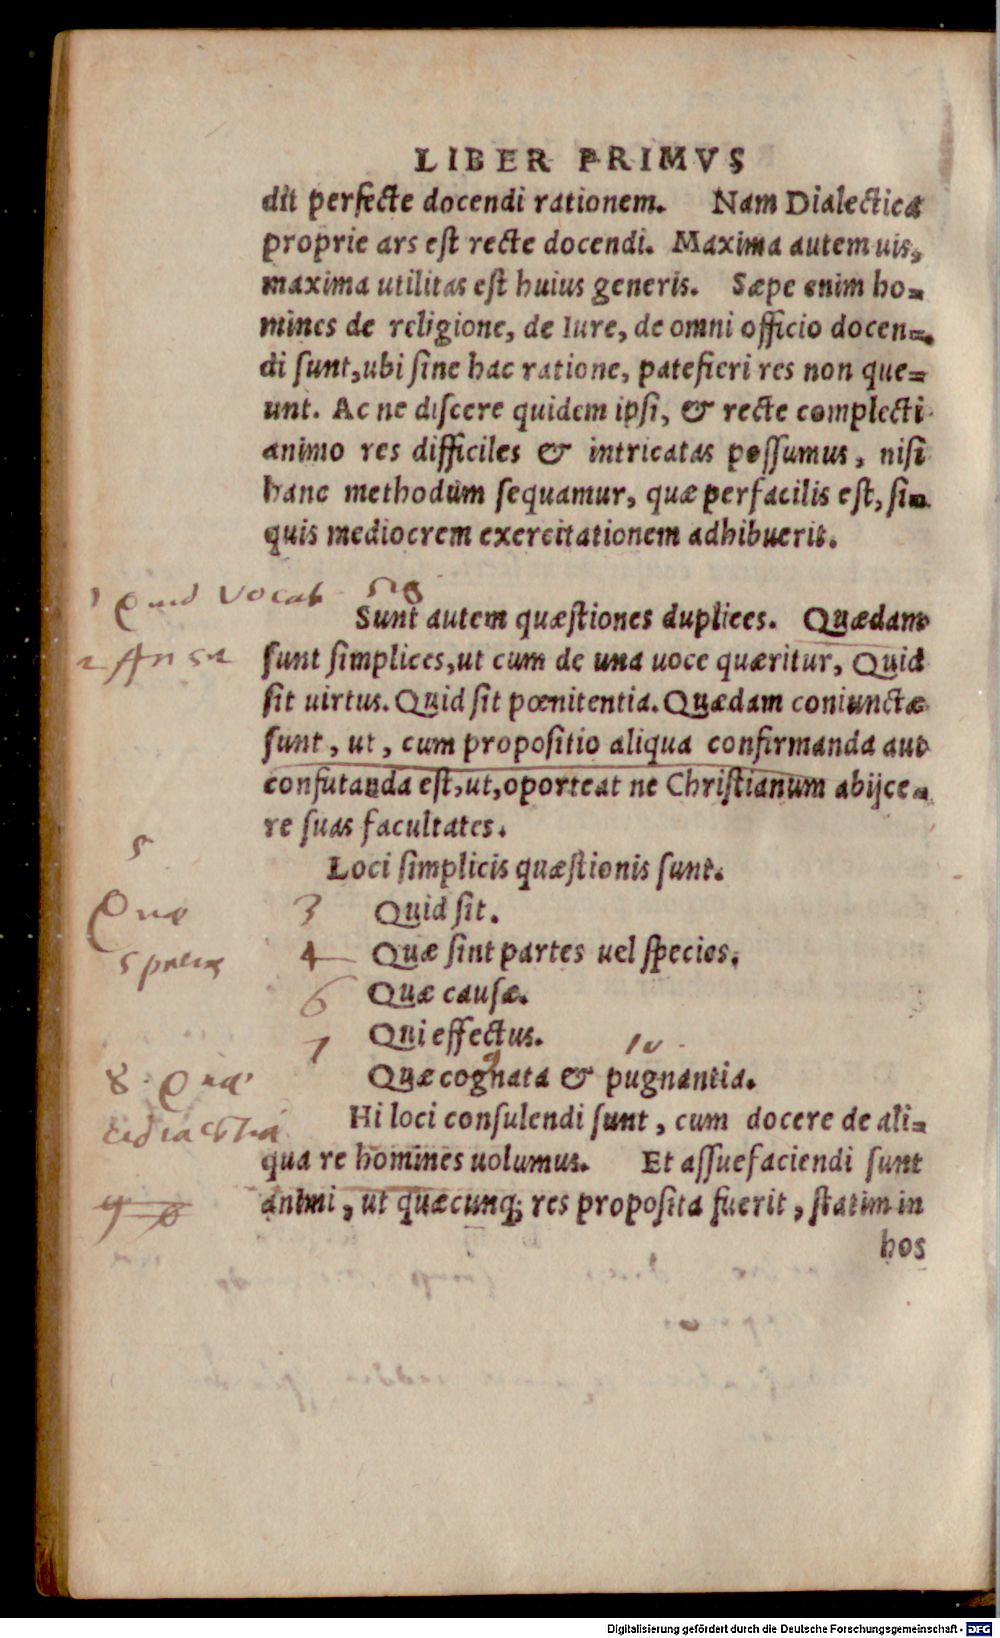 LIBER PRIMVS
dit perfecte docendi rationem. Nam Dialectica
proprie ars est recte docendi. Maxima autem uis,
maxima utilitas est huius generis. Sæpe enim ho-
mines de religione, de Iure, de omni officio docen-
di sunt, ubi sine hac ratione, patefieri res non que-
unt. Ac ne discere quidem ipsi, & recte complecti
animo res difficiles & intricatas possumus, nisi
hanc methodum sequamur, quæ perfacilis est, si-
quis mediocrem exercitationem adhibuerit.
1 Quid vocab
Sunt autem quæstiones duplices. Quædam
2 An sit
sunt simplices, ut cum de una uoce quæritur, Quid
sit uirtus. Quid sit pœnitentia. Quædam coniunctæ
sunt, ut, cum propositio aliqua confirmanda aut
confutanda est, ut, oporteat ne Christianum abijce-
re suas facultates.
5
Loci simplicis quæstionis sunt.
Quæ
3 Quid sit.
species
4 Quæ sint partes uel species.
6 Quæ causæ.
7 Qui effectus.
8 Quæ
9 10
Quæ cognata & pugnantia.
Hi loci consulendi sunt, cum docere de ali-
qua re homines uolumus. Et assuefaciendi sunt
animi, ut quæcunq; res proposita fuerit, statim in
hos
Digitalisierung gefördert durch die Deutsche Forschungsgemeinschaft - DFG